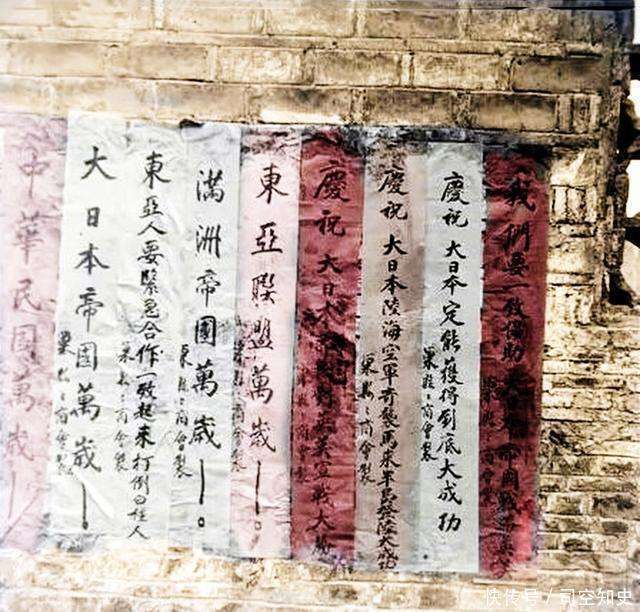 我們要一致協助
慶祝 大日本定能獲得到底大成功
商會製
慶祝 大日本陸海空軍奇襲馬來半島登陸大成功
商會製
慶祝 大日本 英美宣戰大勝
東亞聯盟萬歲！。
商會製
滿洲帝國萬歲！。
商會製
東亞人要緊急合作一致起來打倒白種人
商會製
大日本帝國萬歲！。
商會製
中華民國萬歲！
快传号／司空知史